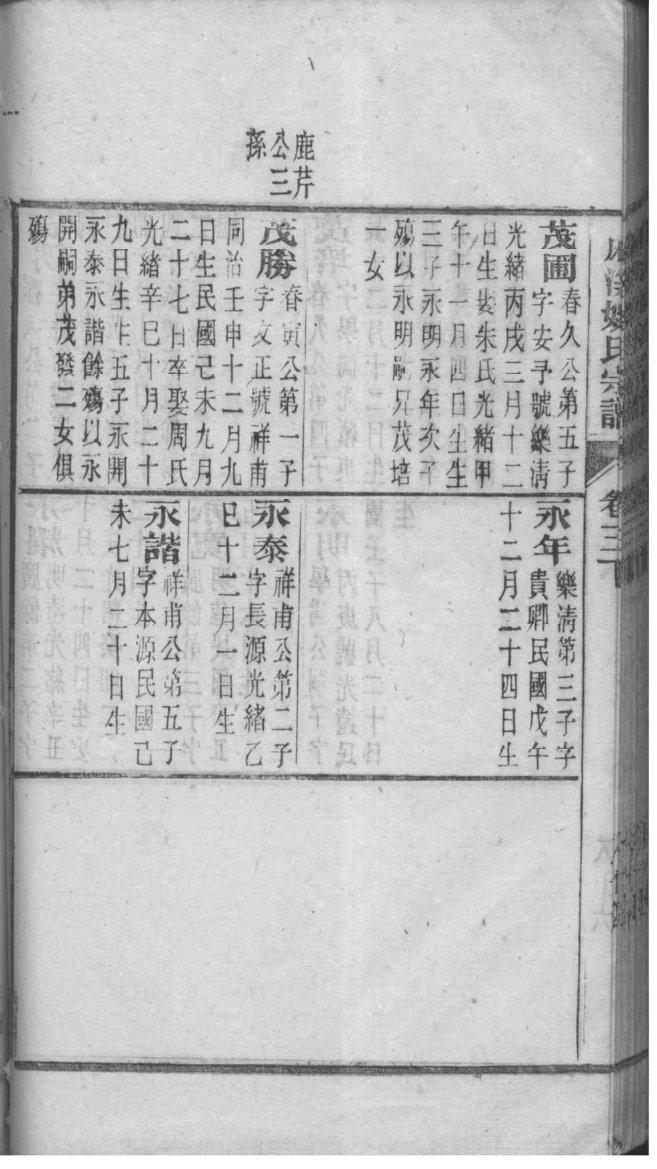 鹿芹
公三
孫
茂圃
春久公第五子
字安予號樂清
光緒丙戌三月十二
日生娶朱氏光緒甲
年十一月四日生生
三子永明永年次子
殤以永明嗣兄茂培
一女
茂勝
春寅公第一子
字文正號祥甫
同治壬申十二月九
日生民國己未九月
二十七日卒娶周氏
光緒辛巳十月二十
九日生生五子永開
永泰永諧餘殤以永
開嗣弟茂發二女俱
殤
永年
樂清第三子字
貴卿民國戊午
十二月二十四日生
永泰
祥甫公第二子
字長源光緒乙
巳十二月一日生
永諧
祥甫公第五子
字本源民國己
未七月二十日生
氏宗譜
卷三